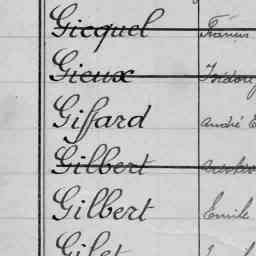 Gicquel Francis
Gieux Isidore
Giffard André E
Gilbert
Gilbert Emile
Gilet